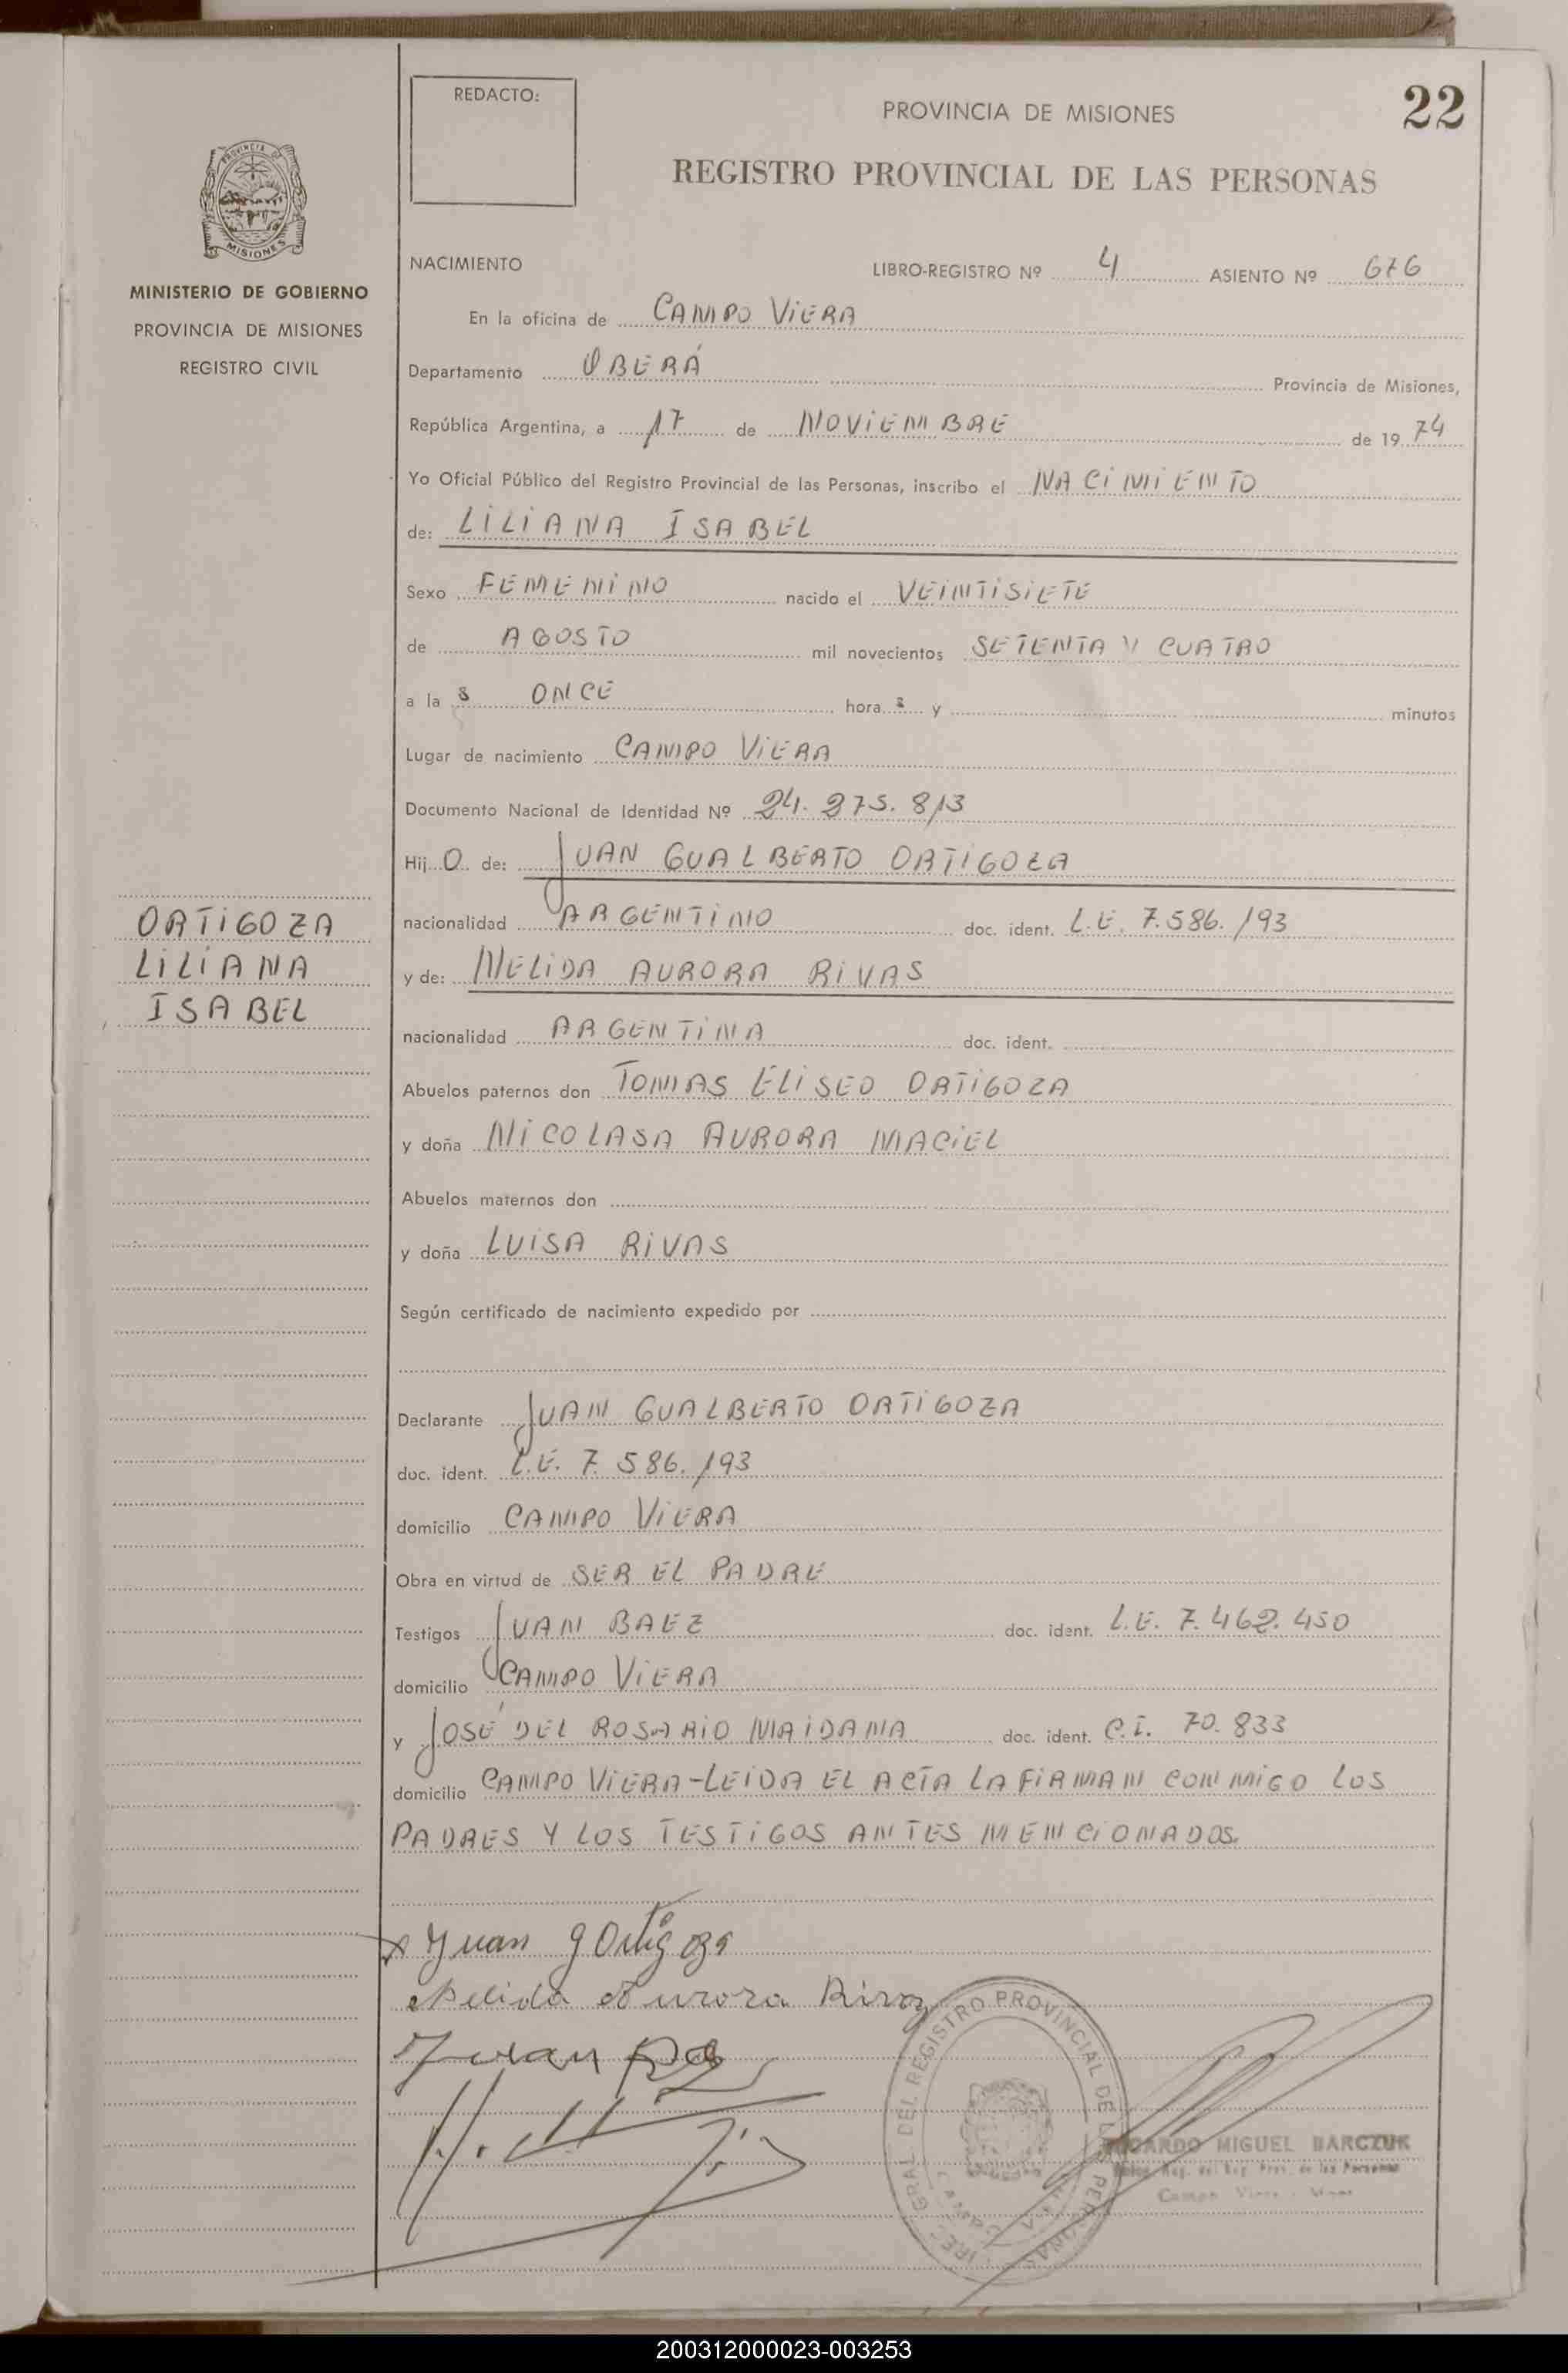 REDACTO:
PROVINCIA DE MISIONES
22
REGISTRO PROVINCIAL DE LAS PERSONAS
PROVINCIA DE
MISIONES
MINISTERIO DE GOBIERNO
PROVINCIA DE MISIONES
REGISTRO CIVIL
NACIMIENTO LIBRO-REGISTRO Nº 4 ASIENTO Nº 676
En la oficina de CAMPO VIERA
Departamento OBERÁ Provincia de Misiones,
República Argentina, a 17 de NOVIEMBRE de 19 74
Yo Oficial Público del Registro Provincial de las Personas, inscribo el NACIMIENTO
de: LILIANA ISABEL
Sexo FEMENINO nacido el VEINTISIETE
de AGOSTO mil novecientos SETENTA Y CUATRO
a la s ONCE hora s y minutos
Lugar de nacimiento CAMPO VIERA
Documento Nacional de Identidad Nº 24.275.813
Hij O de: JUAN GUALBERTO ORTIGOZA
nacionalidad ARGENTINO doc. ident. L.E. 7.586.193
y de: NELIDA AURORA RIVAS
nacionalidad ARGENTINA doc. ident.
Abuelos paternos don TOMAS ELISEO ORTIGOZA
y doña NICOLASA AURORA MACIEL
Abuelos maternos don
y doña LUISA RIVAS
Según certificado de nacimiento expedido por
Declarante JUAN GUALBERTO ORTIGOZA
doc. ident. L.E. 7.586.193
domicilio CAMPO VIERA
Obra en virtud de SER EL PADRE
Testigos JUAN BAEZ doc. ident. L.E. 7.462.450
domicilio CAMPO VIERA
y JOSÉ DEL ROSARIO MAIDANA doc. ident. C.I. 70.833
domicilio CAMPO VIERA-LEIDA EL ACTA LA FIRMAN CONMIGO LOS
PADRES Y LOS TESTIGOS ANTES MENCIONADOS.
ORTIGOZA
LILIANA
ISABEL
Juan G Ortigoza
Nelida Aurora Rivas
Juan
GRAL. DEL REGISTRO PROVINCIAL DE LAS PERSONAS
MIGUEL BARCZUK
Campo Viera
200312000023-003253